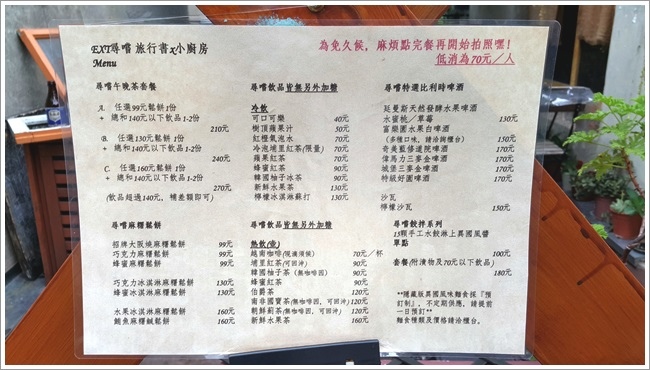 EXT尋嚐 旅行書x小廚房
Menu
為免久候，麻煩點完餐再開始拍照喔！
低消為70元／人
尋嚐午晚茶套餐
A. 任選99元鬆餅1份
+ 總和140元以下飲品1-2份
210元
B. 任選130元鬆餅1份
+ 總和140元以下飲品1-2份
240元
C. 任選160元鬆餅1份
+ 總和140元以下飲品1-2份
270元
(飲品超過140元，補差額即可)
尋嚐麻糬鬆餅
招牌大阪燒麻糬鬆餅 99元
巧克力麻糬鬆餅 99元
蜂蜜麻糬鬆餅 99元
巧克力冰淇淋麻糬鬆餅 130元
蜂蜜冰淇淋麻糬鬆餅 130元
水果冰淇淋麻糬鬆餅 160元
鮪魚麻糬鹹鬆餅 160元
尋嚐飲品皆無另外加糖
冷飲
可口可樂 40元
樹頂蘋果汁 50元
紅橙氣泡水 50元
冷泡埔里紅茶(限量) 70元
蘋果紅茶 90元
蜂蜜紅茶 90元
韓國柚子冰茶 90元
新鮮水果茶 130元
檸檬冰淇淋蘇打 150元
尋嚐飲品皆無另外加糖
熱飲(壺)
越南咖啡(現滴須候) 70元／杯
埔里紅茶(可回沖) 90元
韓國柚子茶 (無咖啡因) 90元
蜂蜜紅茶 90元
伯爵茶 120元
南非國寶茶(無咖啡因，可回沖) 120元
朝鮮薊茶(無咖啡因，可回沖) 120元
新鮮水果茶 160元
尋嚐特選比利時啤酒
廷曼斯天然發酵水果啤酒
水蜜桃／草莓 150元
富樂園水果白啤酒
(多種口味，請洽詢櫃台) 150元
奇美藍修道院啤酒 170元
偉馬力三麥金啤酒 170元
城堡三麥金啤酒 170元
特級好園啤酒 170元
沙瓦
檸檬沙瓦 150元
尋嚐餃拌系列
15顆手工水餃淋上異國風醬
單點
100元
套餐(附漬物及70元以下飲品)
180元
**隱藏版異國風味麵食採『預
訂制』，不定期供應，請提前
一日預訂**
麵食種類及價格請洽櫃台。